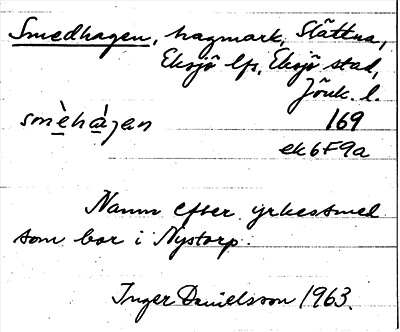 Smedhagen, hagmark, Slättna,
Eksjö lfs, Eksjö stad,
Jönk. l.
smèhàgan 169
ek6F9a
Namn efter yrkessmed
som bor i Nystorp.
Inger Danielsson 1963.